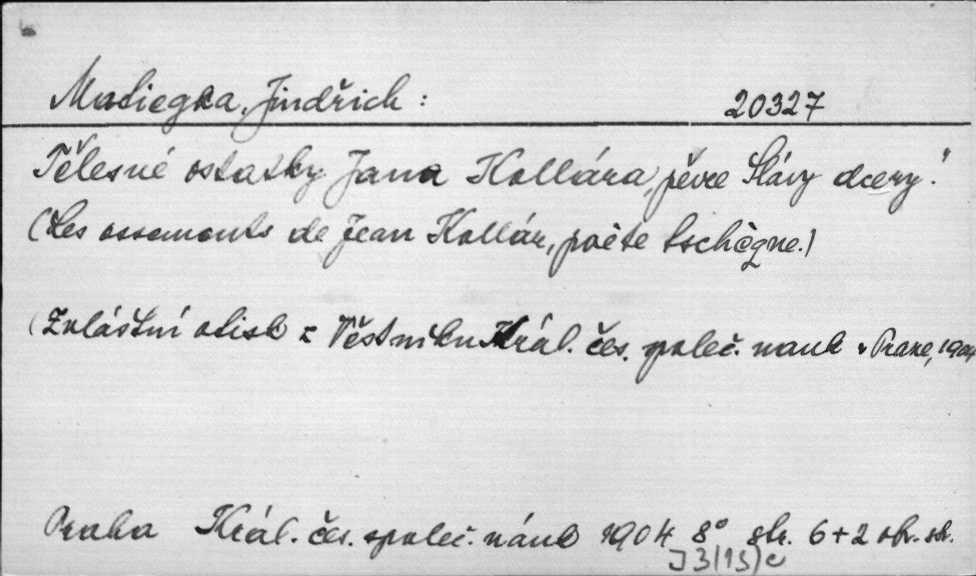 Matiegka, Jindřich: 20327
Tělesné ostatky Jana Kollára, pěvce Slávy dcery."
(Les ossements de Jean Kollár, poète tschèque.)
(Zvláštní otisk z Věstníku Král. čes. společ. nauk v Praze, 1904
Praha Král. čes. společ. náuk 1904 8° str. 6+2 obr. str.
J3/13/c